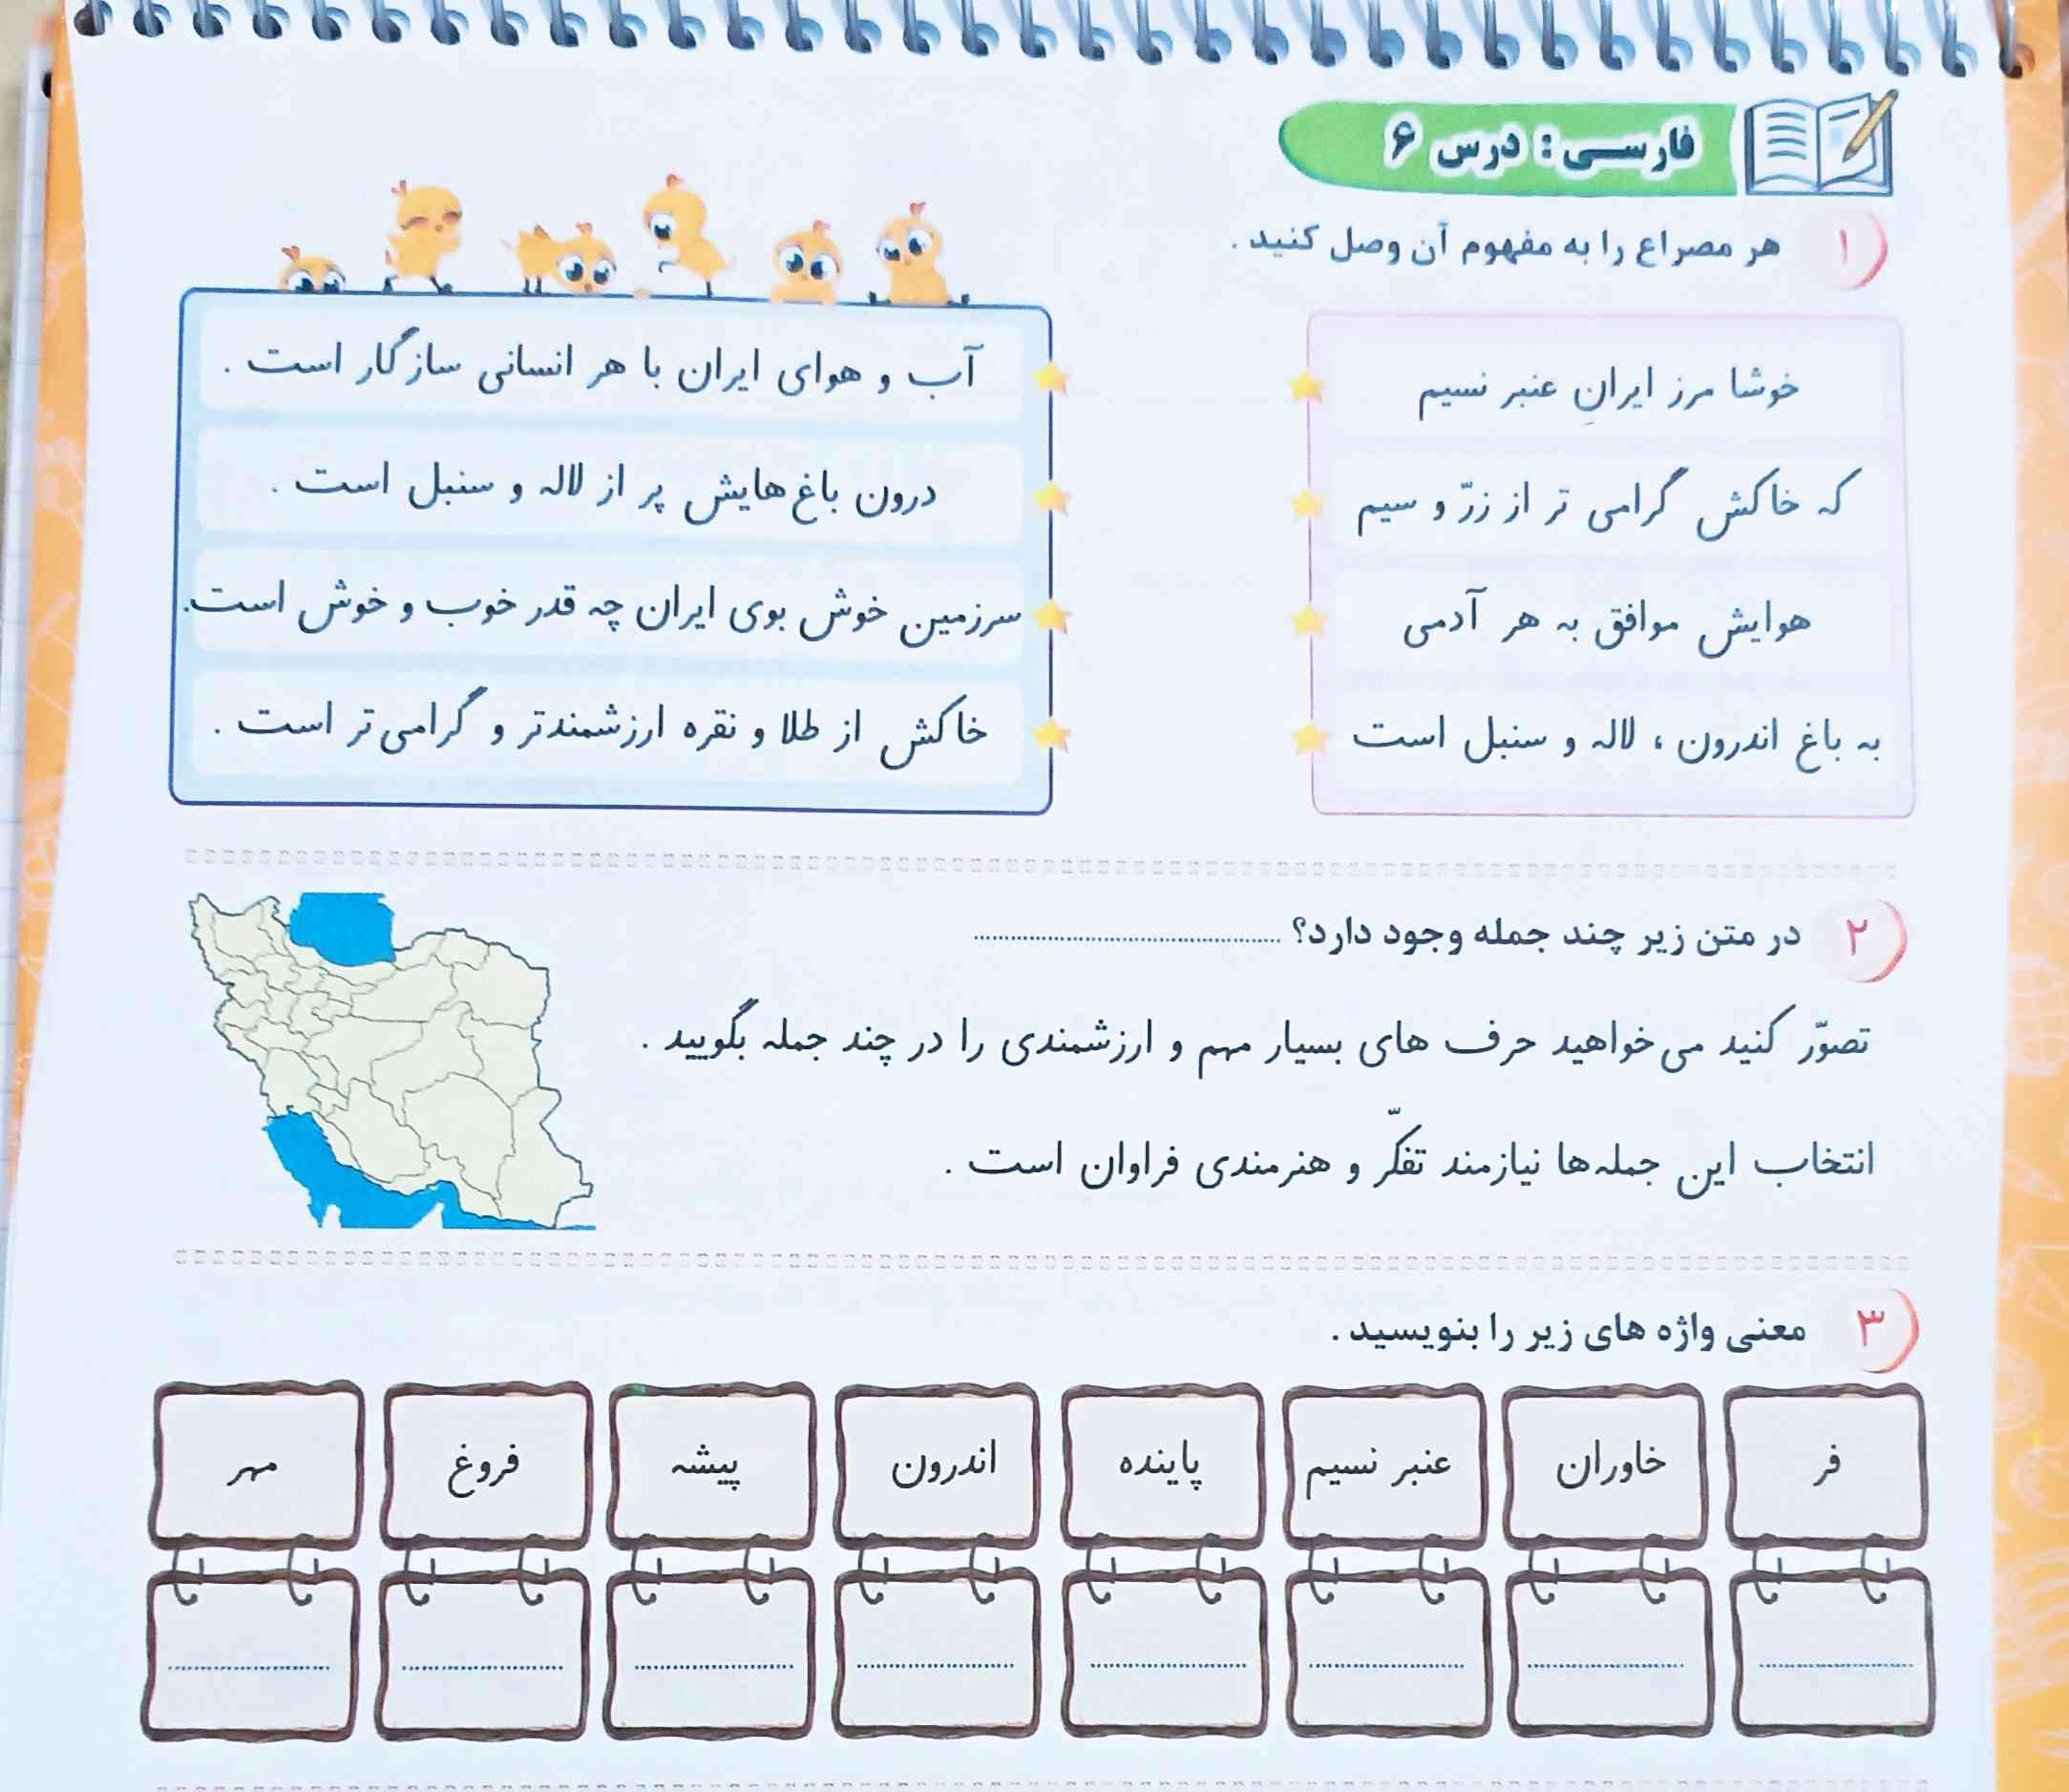 فارسی : درس ۶
۱ هر مصراع را به مفهوم آن وصل کنید .
خوشا مرز ایرانِ عنبر نسیم
که خاکش گرامی تر از زرّ و سیم
هوایش موافق به هر آدمی
به باغ اندرون ، لاله و سنبل است
آب و هوای ایران با هر انسانی سازگار است .
درون باغ‌هایش پر از لاله و سنبل است .
سرزمین خوش بوی ایران چه قدر خوب و خوش است.
خاکش از طلا و نقره ارزشمندتر و گرامی‌تر است .
۲ در متن زیر چند جمله وجود دارد؟ ..............................
تصوّر کنید می‌خواهید حرف های بسیار مهم و ارزشمندی را در چند جمله بگویید .
انتخاب این جمله‌ها نیازمند تفکّر و هنرمندی فراوان است .
۳ معنی واژه های زیر را بنویسید .
فر خاوران عنبر نسیم پاینده اندرون پیشه فروغ مهر